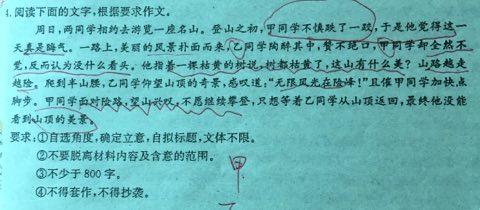 4.阅读下面的文字,根据要求作文。
周日,两同学相约去游览一座名山。登山之初,甲同学不慎跌了一跤,于是他觉得这一
天真是晦气。一路上,美丽的风景扑面而来,乙同学陶醉其中,赞不绝口,甲同学却全然不
觉,反而认为没什么看头。他指着一棵枯黄的树说,树都枯黄了,这山有什么美?山路越走
越险。爬到半山腰,乙同学仰望山顶的奇景,感叹道:“无限风光在险峰!”且催甲同学加快点
脚步。甲同学面对险路,望山兴叹,不愿继续攀登,只想等着乙同学从山顶返回,最终他没能
看到山顶的美景。
要求:①自选角度,确定立意,自拟标题,文体不限。
②不要脱离材料内容及含意的范围。
③不少于800字。
④不得套作,不得抄袭。
甲